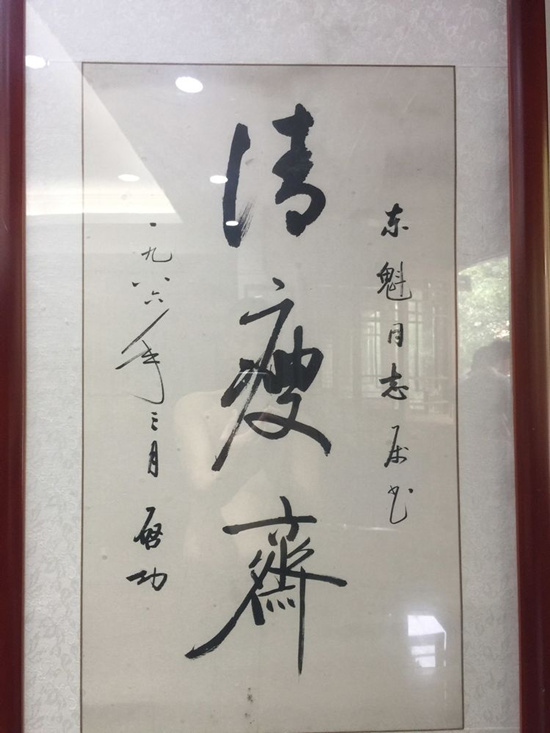 东魁同志属书
清瘦斋
一九八六年三月 启功